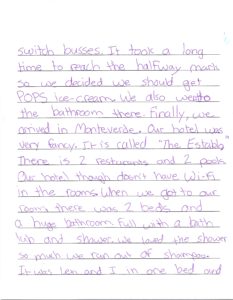 switch busses. It took a long
time to reach the halfway mark
so we decided we should get
POPS Ice-cream. We also went to
the bathroom there. Finally, we
arrived in Monteverde. Our hotel was
very fancy. It is called "The Establo
There is 2 restaurants and 2 pools
Our hotel though doesn't have Wi-Fi
in the rooms. When we got to our
rooms there was 2 beds and
a huge bathroom full with a bath
tub and shower. We loved the shower
so much we ran out of shampoo.
It was Lexi and I in one bed and